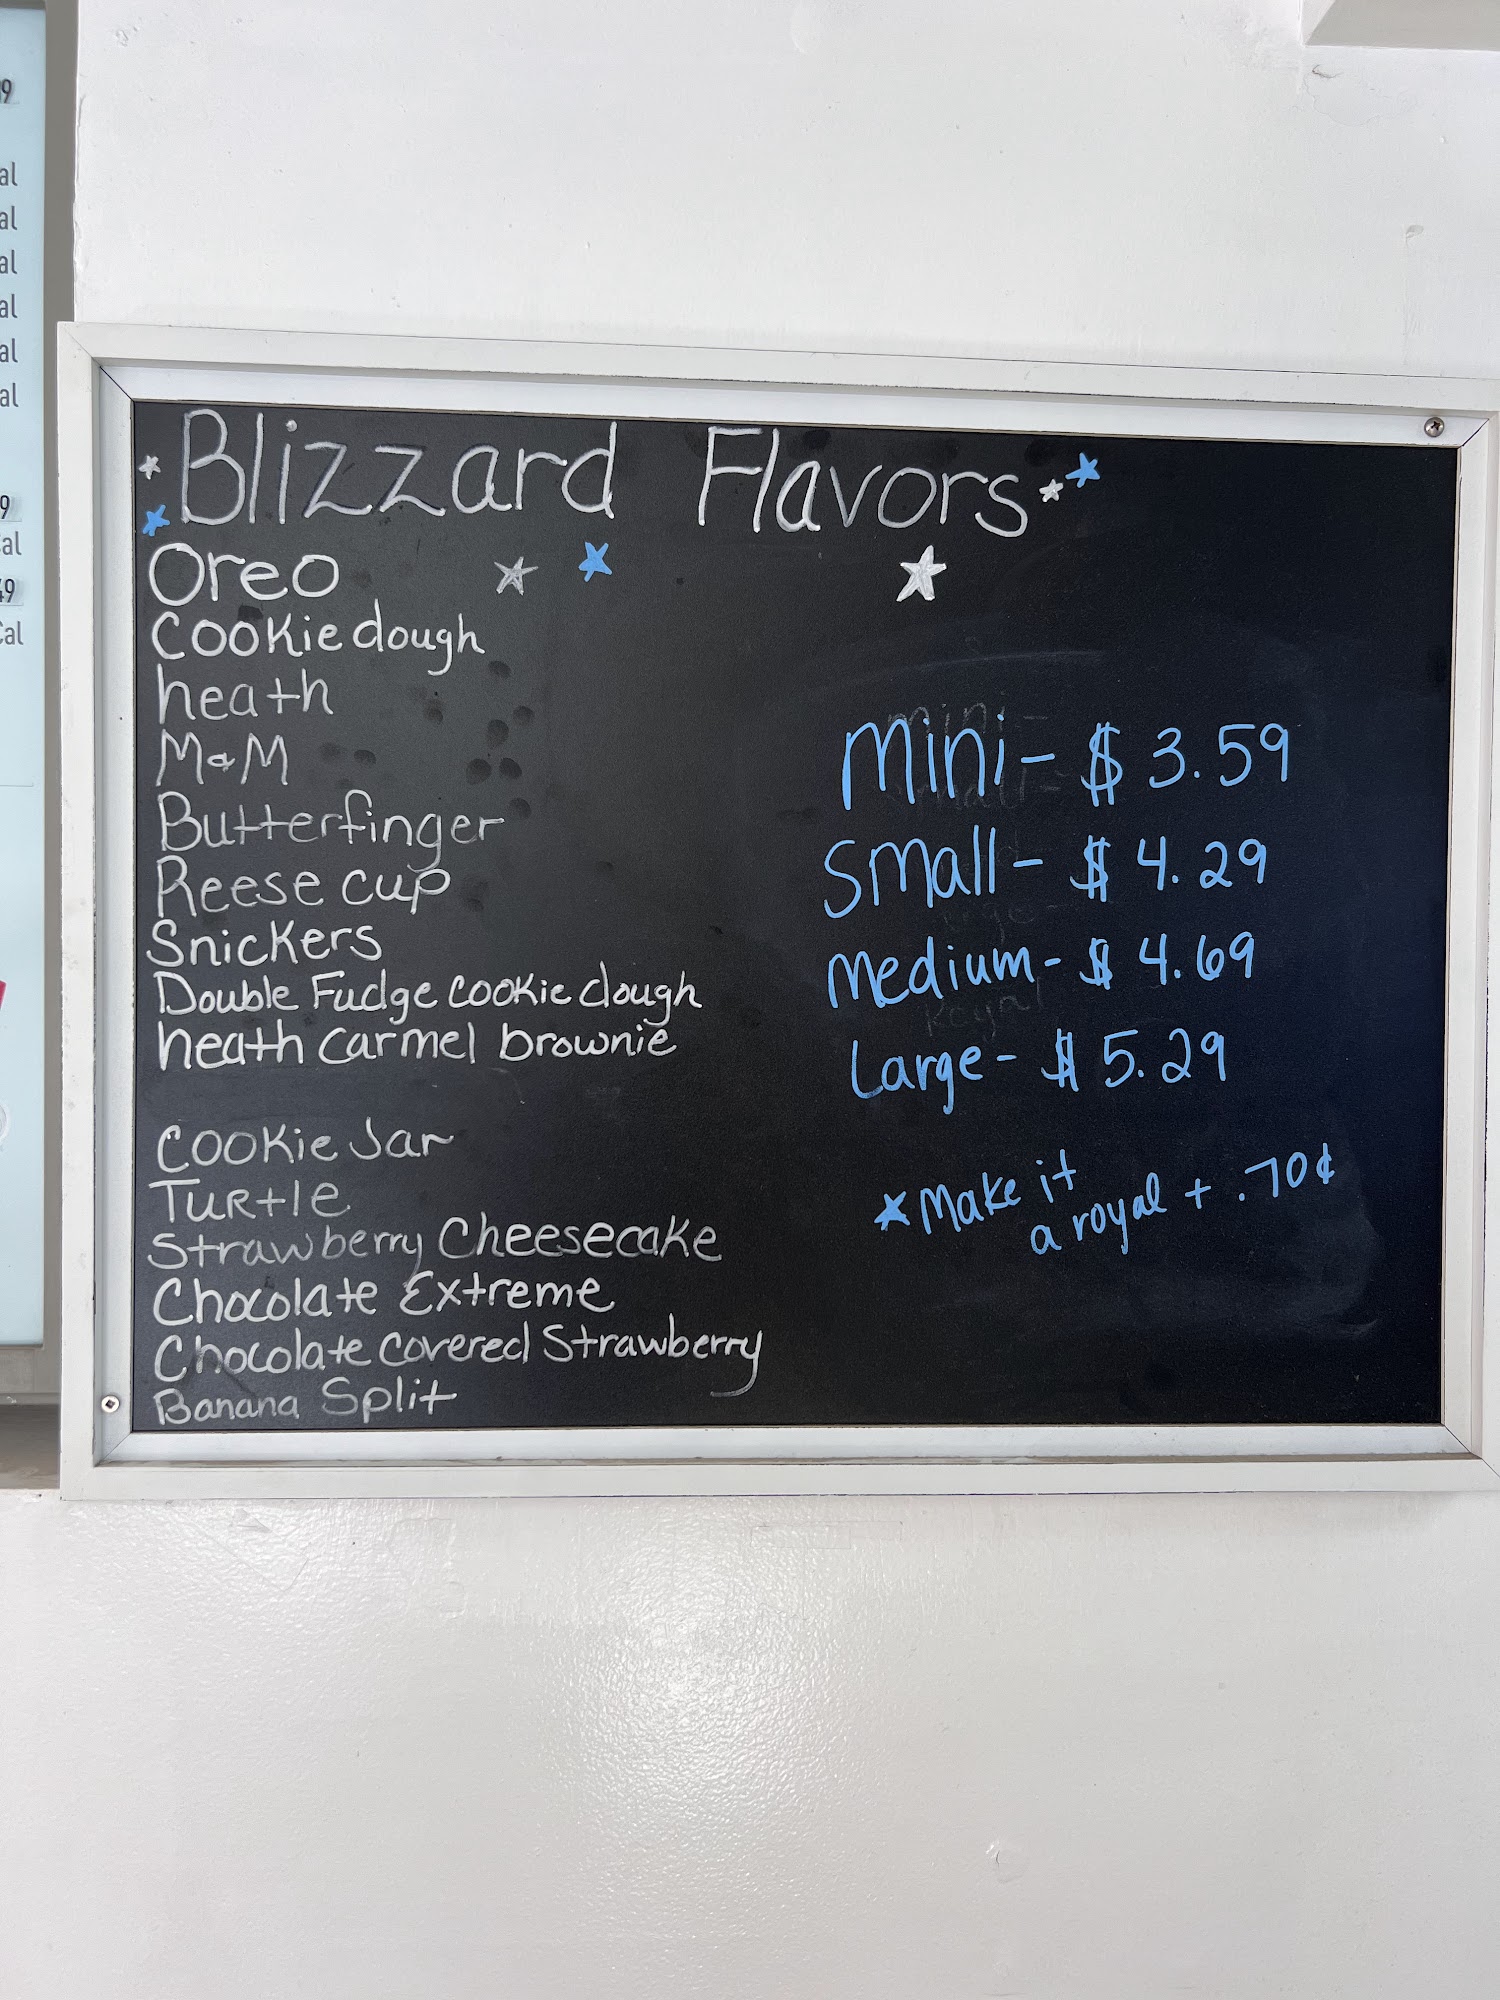 9
al
al
al
al
al
al
9
Cal
49
Cal
Blizzard Flavors
Oreo
Cookie dough
heath
M&M
Butterfinger
Reese cup
Snickers
Double Fudge cookie dough
heath carmel brownie
Cookie Jar
Turtle
Strawberry Cheesecake
Chocolate Extreme
Chocolate covered Strawberry
Banana Split
mini - $3.59
Small - $4.29
Medium - $4.69
Large - $5.29
Make it
a royal + .70¢